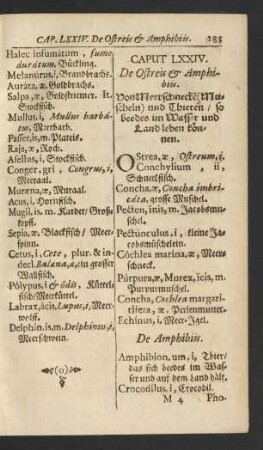 CAP. LXXIV. De Ostreis & Amphibiis. 183
Halec infumatum, fumo
duratum. Bückling.
Melanúrus, i, Brandbrachs.
Auráta, æ, Goldbrachs.
Salpa, æ, Goldstriemer. It.
Stockfisch.
Mullus, i, Mullus barbá-
tus, Meerbath.
Passer, is, m. Plateis.
Raja, æ, Roch.
Asellus, i, Stockfisch.
Conger, gri, Congrus, i,
Meeraal.
Murǽna, æ, Muraal.
Acus, i, Hornfisch.
Mugil, is, m. Harder/ Groß-
kopff.
Sepia, æ, Blackfisch/ Meer-
spinn.
Cetus, i, Cete, plur. & in-
decl. Balæna, æ, ein grosser
Wallfisch.
Pólypus, i & ódis, Kuttel-
fisch/ Meerküttel.
Labrax, ácis, Lupus, i, Meer-
wolff.
Delphin, is, m. Delphinus, i,
Meerschwein.
(o)
CAPUT LXXIV.
De Ostreis & Amphi-
biis.
Von Meerschnecke(Mu-
scheln) und Thieren / so
beedes im Wasser und
Land leben kön-
nen.
OStrea, æ, Ostreum, i,
Conchylium, ii,
Schneckfisch.
Concha, æ, Concha imbri-
cáta, grosse Muschel.
Pecten, ínis, m. Jacobsmu-
schel.
Pectúnculus, i, kleine Ja-
cobsmüschelein.
Cóchlea marina, æ, Meer-
schneck.
Púrpura, æ, Murex, ícis, m.
Purpurmuschel.
Concha, Cochlea margari-
tifera, æ, Perlenmutter.
Echínus, i, Meer-Igel.
De Amphibiis.
Amphíbion, um, i, Thier/
das sich beedes im Was-
ser und auf dem Land hält.
Crocodilus, i, Crocodil.
M 4 Pho-